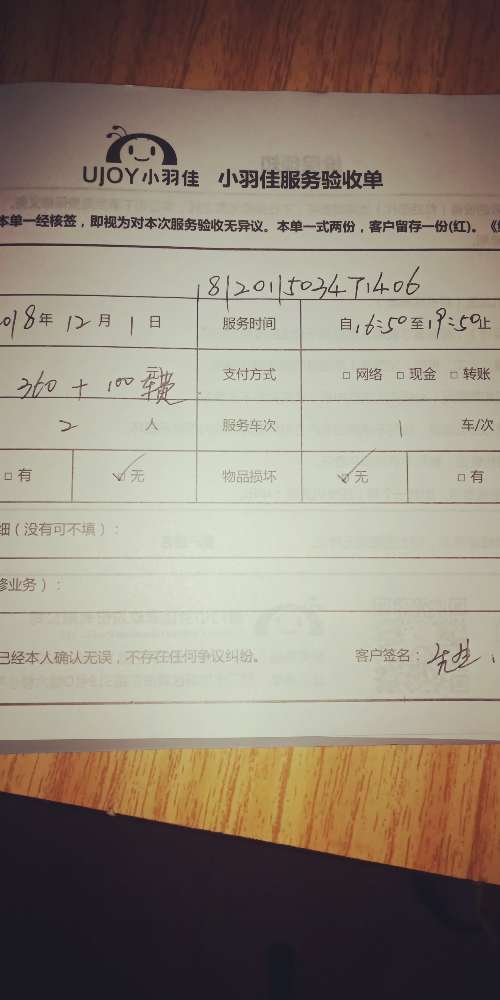 UJOY小羽佳 小羽佳服务验收单
本单一经核签，即视为对本次服务验收无异议。本单一式两份，客户留存一份(红)。《
1812011503471406
2018年 12月 1日 服务时间 自16:50至19:50止
360+100车费 元 支付方式 □网络 □现金 □转账
2 人 服务车次 1 车/次
□有 ☑无 物品损坏 ☑无 □有
细（没有可不填）：
修业务）：
已经本人确认无误，不存在任何争议纠纷。 客户签名： 先生